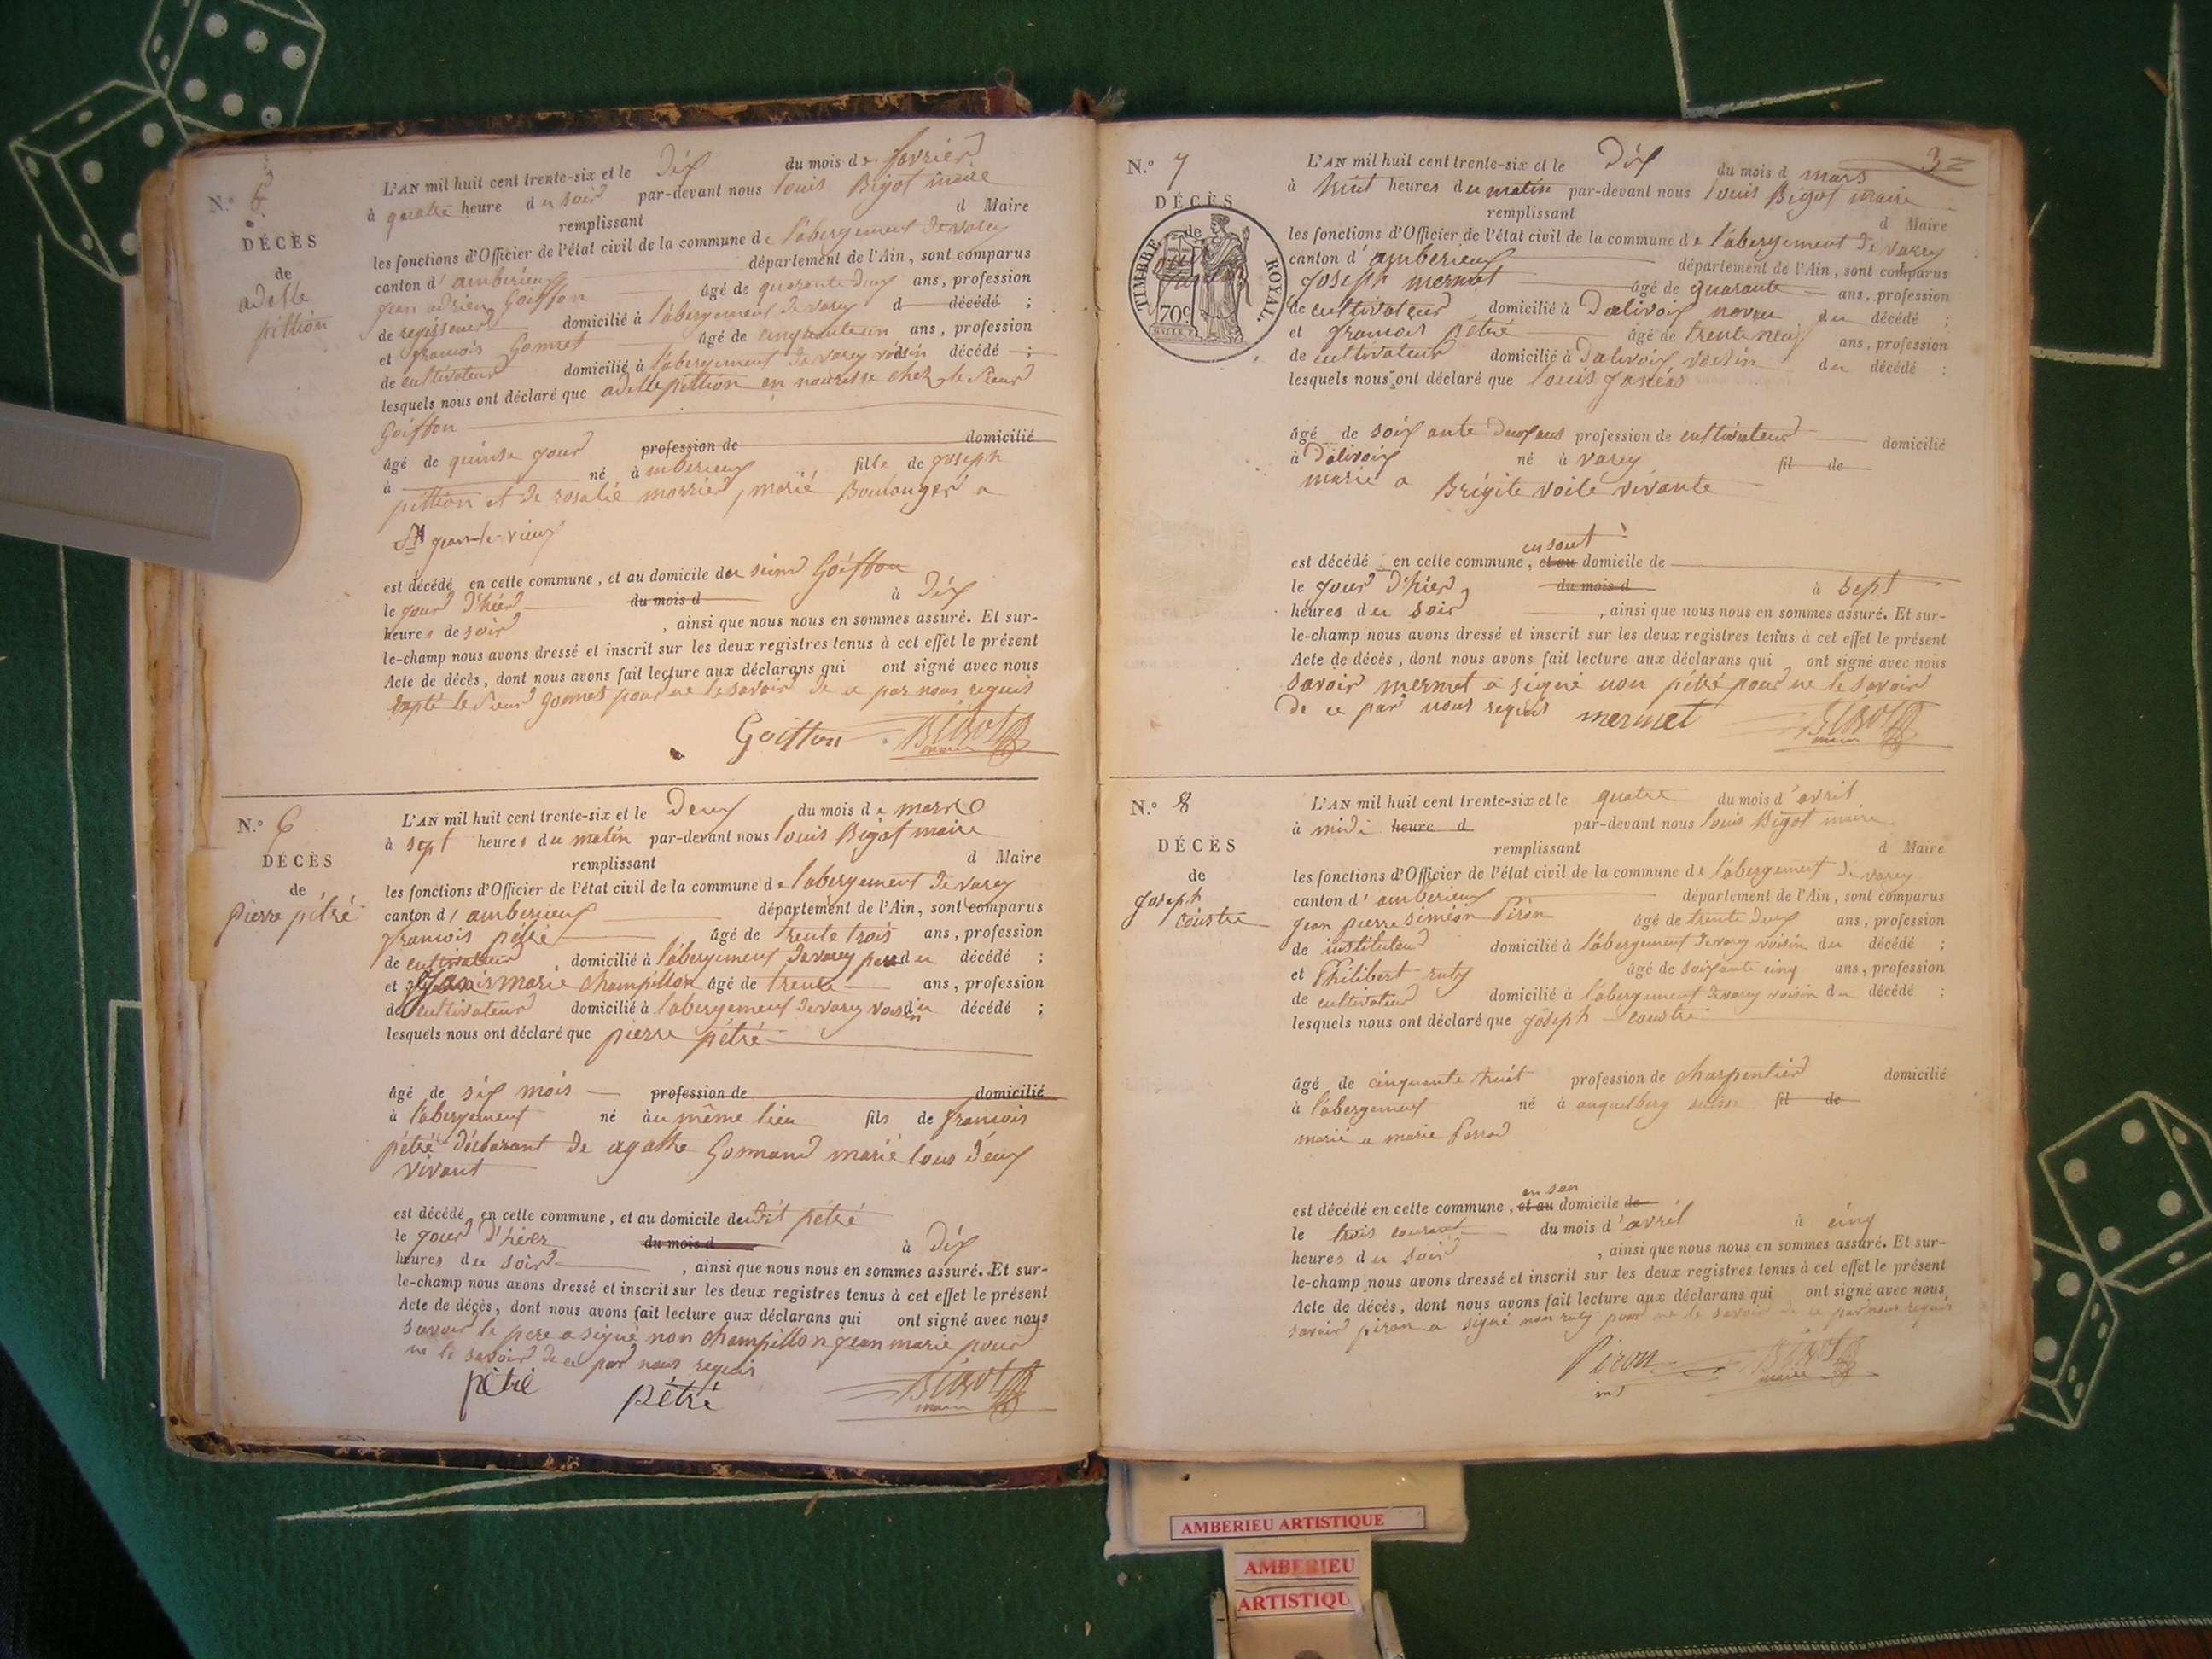 N.o 5
DÉCÈS
de
adelle
pittion
L'AN mil huit cent trente-six et le Dix du mois de favrier
à quatre heure du soir par-devant nous louis Bigot maire
remplissant d Maire
les fonctions d'Officier de l'état civil de la commune de l'abergement De varey
canton d'amberieux département de l'Ain, sont comparus
jean adrien Goiffon âgé de quarante deux ans, profession
de regisseur domicilié à l'abergement De varey d décédé ;
et francois Gonnet âgé de cinquanteun ans, profession
de cultivateur domicilié à l'abergement De varey voisin décédé ;
lesquels nous ont déclaré que adelle pittion en nourisse chez le sieur
Goiffon
âgé de quinse jour profession de domicilié
à né à amberieux fille de joseph
pittion et de rosalie morrier, marié Boulanger a
St jean-le-vieux
est décédé en cette commune, et au domicile du sieur Goiffon
le jour D'hier du mois d à Dix
heures de soir , ainsi que nous nous en sommes assuré. Et sur-
le-champ nous avons dressé et inscrit sur les deux registres tenus à cet effet le présent
Acte de décès, dont nous avons fait lecture aux déclarans qui ont signé avec nous
le sieur gonnet pour ne le savoir de ce par nous requis
Goiffon Bigot
maire
N.o 6
DÉCÈS
de
pierre pétré
L'AN mil huit cent trente-six et le Deux du mois de mars
à sept heures du matin par-devant nous louis Bigot maire
remplissant d Maire
les fonctions d'Officier de l'état civil de la commune de l'abergement De varey
canton d'amberieux département de l'Ain, sont comparus
francois pétré âgé de trente trois ans, profession
de cultivateur domicilié à l'abergement De varey père du décédé ;
et marie champillon âgé de trente ans, profession
de cultivateur domicilié à l'abergement De varey voisin du décédé ;
lesquels nous ont déclaré que pierre pétré
âgé de six mois profession de domicilié
à l'abergement né au même lieu fils de francois
pétré déclarant de agathe Gonnand marié tous deux
vivant
est décédé en cette commune, et au domicile du Dit pétré
le jour D'hier du mois d à Dix
heures du soir , ainsi que nous nous en sommes assuré. Et sur-
le-champ nous avons dressé et inscrit sur les deux registres tenus à cet effet le présent
Acte de décès, dont nous avons fait lecture aux déclarans qui ont signé avec nous
savoir le pere a signé non champillon jean marie pour
ne le savoir de ce par nous requis
pétré pétré Bigot
maire
3
N.o 7
DÉCÈS
de
TIMBRE ROYAL
70c
L'AN mil huit cent trente-six et le Dix du mois d mars
à huit heures du matin par-devant nous louis Bigot maire
remplissant d Maire
les fonctions d'Officier de l'état civil de la commune de l'abergement De varey
canton d'amberieux département de l'Ain, sont comparus
joseph mermet âgé de quarante ans, profession
de cultivateur domicilié à Dalivoix neveu du décédé ;
et francois Pétré âgé de trente neuf ans, profession
de cultivateur domicilié à Dalivoix voisin du décédé ;
lesquels nous ont déclaré que louis
âgé de soixante deux ans profession de cultivateur domicilié
à Dalivoix né à varey fil de
marié a Brigite voile vivante
en sont
est décédé en cette commune, et au domicile de
le jour D'hier du mois d à sept
heures du soir , ainsi que nous nous en sommes assuré. Et sur-
le-champ nous avons dressé et inscrit sur les deux registres tenus à cet effet le présent
Acte de décès, dont nous avons fait lecture aux déclarans qui ont signé avec nous
savoir mermet a signé non pétré pour ne le savoir
De ce par nous requis mermet Bigot
maire
N.o 8
DÉCÈS
de
joseph
coustre
L'AN mil huit cent trente-six et le quatre du mois d'avril
à midi heure d par-devant nous louis Bigot maire
remplissant d Maire
les fonctions d'Officier de l'état civil de la commune de l'abergement De varey
canton d'amberieux département de l'Ain, sont comparus
jean pierre siméon Piron âgé de trente deux ans, profession
de instituteur domicilié à l'abergement De varey voisin du décédé ;
et Philibert ruty âgé de soixante cinq ans, profession
de cultivateur domicilié à l'abergement De varey voisin du décédé ;
lesquels nous ont déclaré que joseph coustre
âgé de cinquante huit profession de charpentier domicilié
à l'abergement né à suisse fil de
marié a marie Perrod
en son
est décédé en cette commune, et au domicile de
le trois courant du mois d'avril à cinq
heures du soir , ainsi que nous nous en sommes assuré. Et sur-
le-champ nous avons dressé et inscrit sur les deux registres tenus à cet effet le présent
Acte de décès, dont nous avons fait lecture aux déclarans qui ont signé avec nous
savoir piron a signé non ruty pour ne le savoir de ce par nous requis
Piron Bigot
maire
AMBERIEU ARTISTIQUE
AMBERIEU
ARTISTIQU